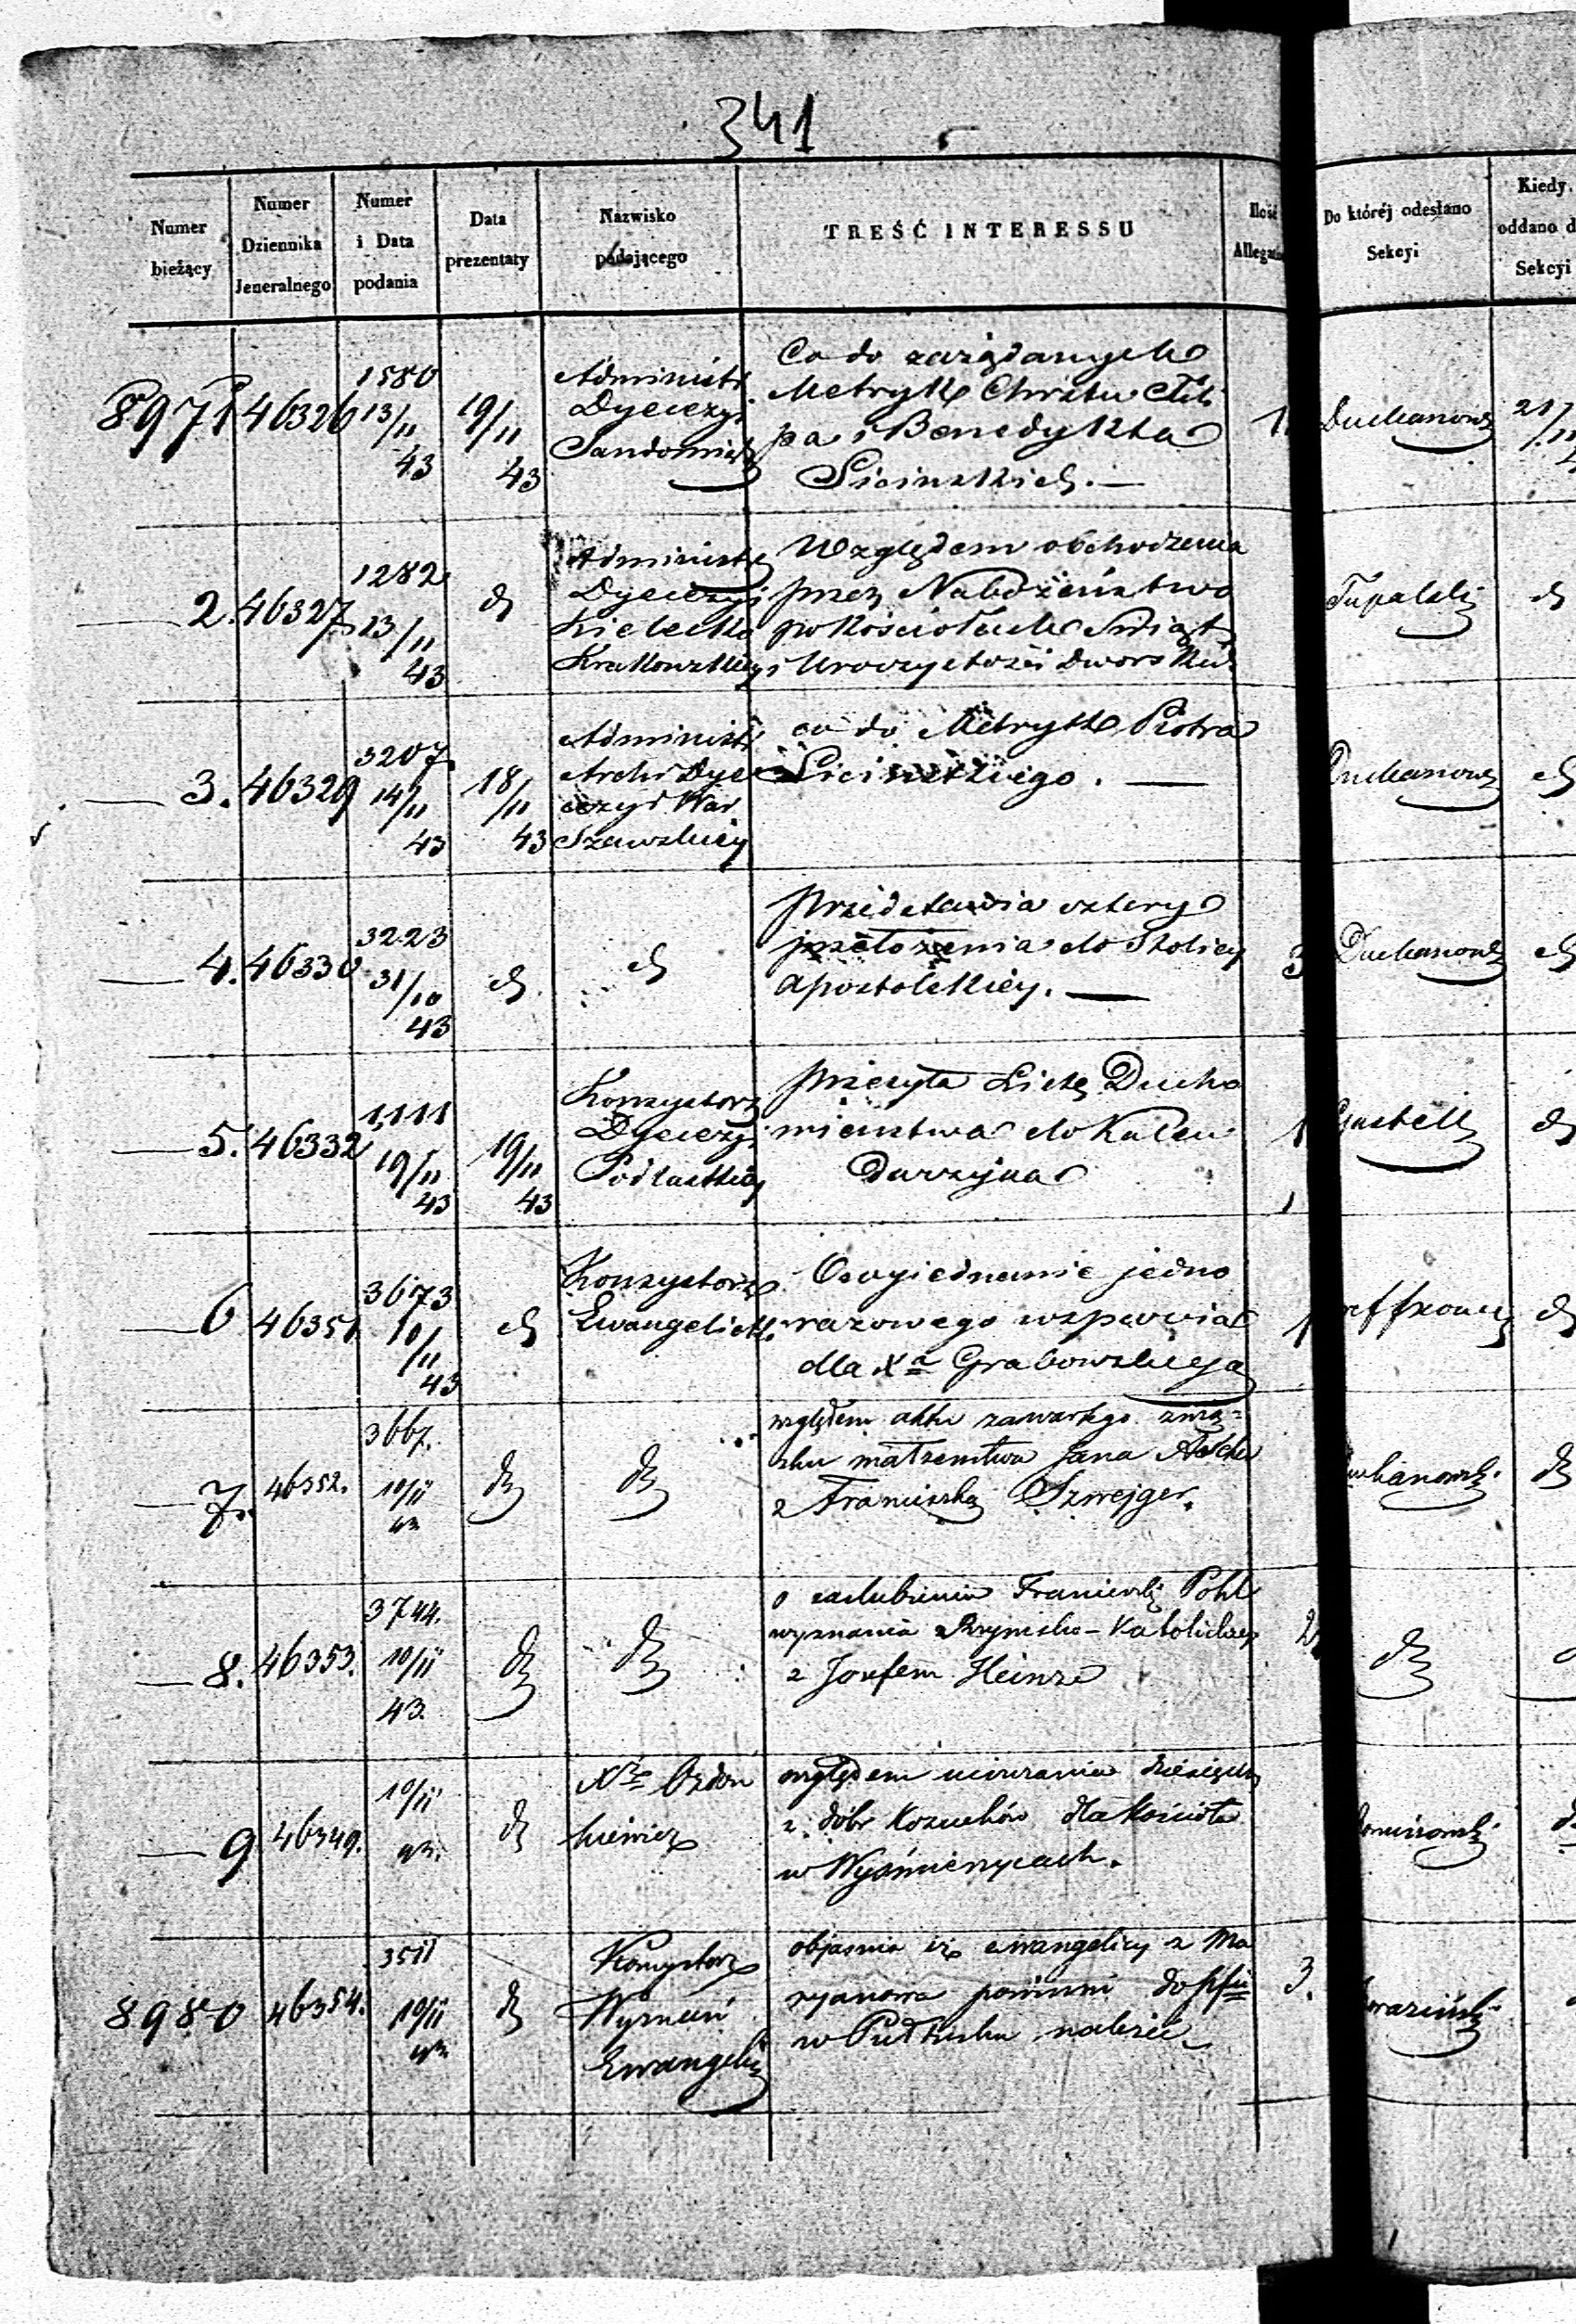 341
Numer bieżący
Numer Dziennika Jeneralnego
Numer i Data podania
Data prezentaty
Nazwisko podającego
TREŚĆ INTERESSU
Ilość Allegatów
Do któréj odesłano Sekcyi
Kiedy
oddano d
Sekcyi
8971 46326 1580 13/11 43 19/11 43
Administ
Dyecezyi
Sandomirs
Co do zażądanych
Metryk Chrztu Fili
pa i Benedykta
Sicinskich. —
1
Duchanows
21/11
2. 46327 1282 13/11 43 d
Administ
Dyecezyi
Kielecko
Krakowskiey
Względem obchodzenia
przez Nabożeństwo
po Kościołach Świąt
i Uroczystości Dworskich
Tupalski
d
3. 46329 3207. 14/11 43 18/11 43
Administ
Archi Dye
cezyi War
szawskiey
co do Metryk Piotra
Sicinskiego. —
Duchanows
d
4. 46330 3223 31/10 43 d
d
Przedstawia cztery
przełożenia do Stolicy
Apostolskiey. —
3
Duchanows
d
5. 46332 1111 19/11 43 19/11 43
Konzystorz
Dyecezyi
Podlaskiey
Przesyła Listę Ducho
wieństwa do Kalen
darzyka
1
1
d
6 46351 3673 10/11 43 d
Konzystorz
Ewangelick.
O wyjednanie jedno
razowego wsparcia
dla Xa Grabowskiego
1
d
7. 46352. 3667. 10/11 43 d
d
względem aktu zawartego zwią=
zku małżeństwa Jana
z Franciszką Szwejger.
uchanowsk.
d
8. 46353. 3744. 10/11 43. d
d
o zaślubienie Franciszki Pohl
wyznania Rzymsko-Katolickiego
z Jozefem Heinze
2
d
9 46349. 10/11 43. d
względem uiszczania dziesięciny
z dóbr Kozuchów dla Kościoła
w Wyśmierzycach.
8980 46354. 3511 10/11 43 d
Konsystorz
Wyznań
Ewangelic
objaśnia iż ewangelicy z Ma
ryanowa powinni do
w Pułtusku należeć
3.